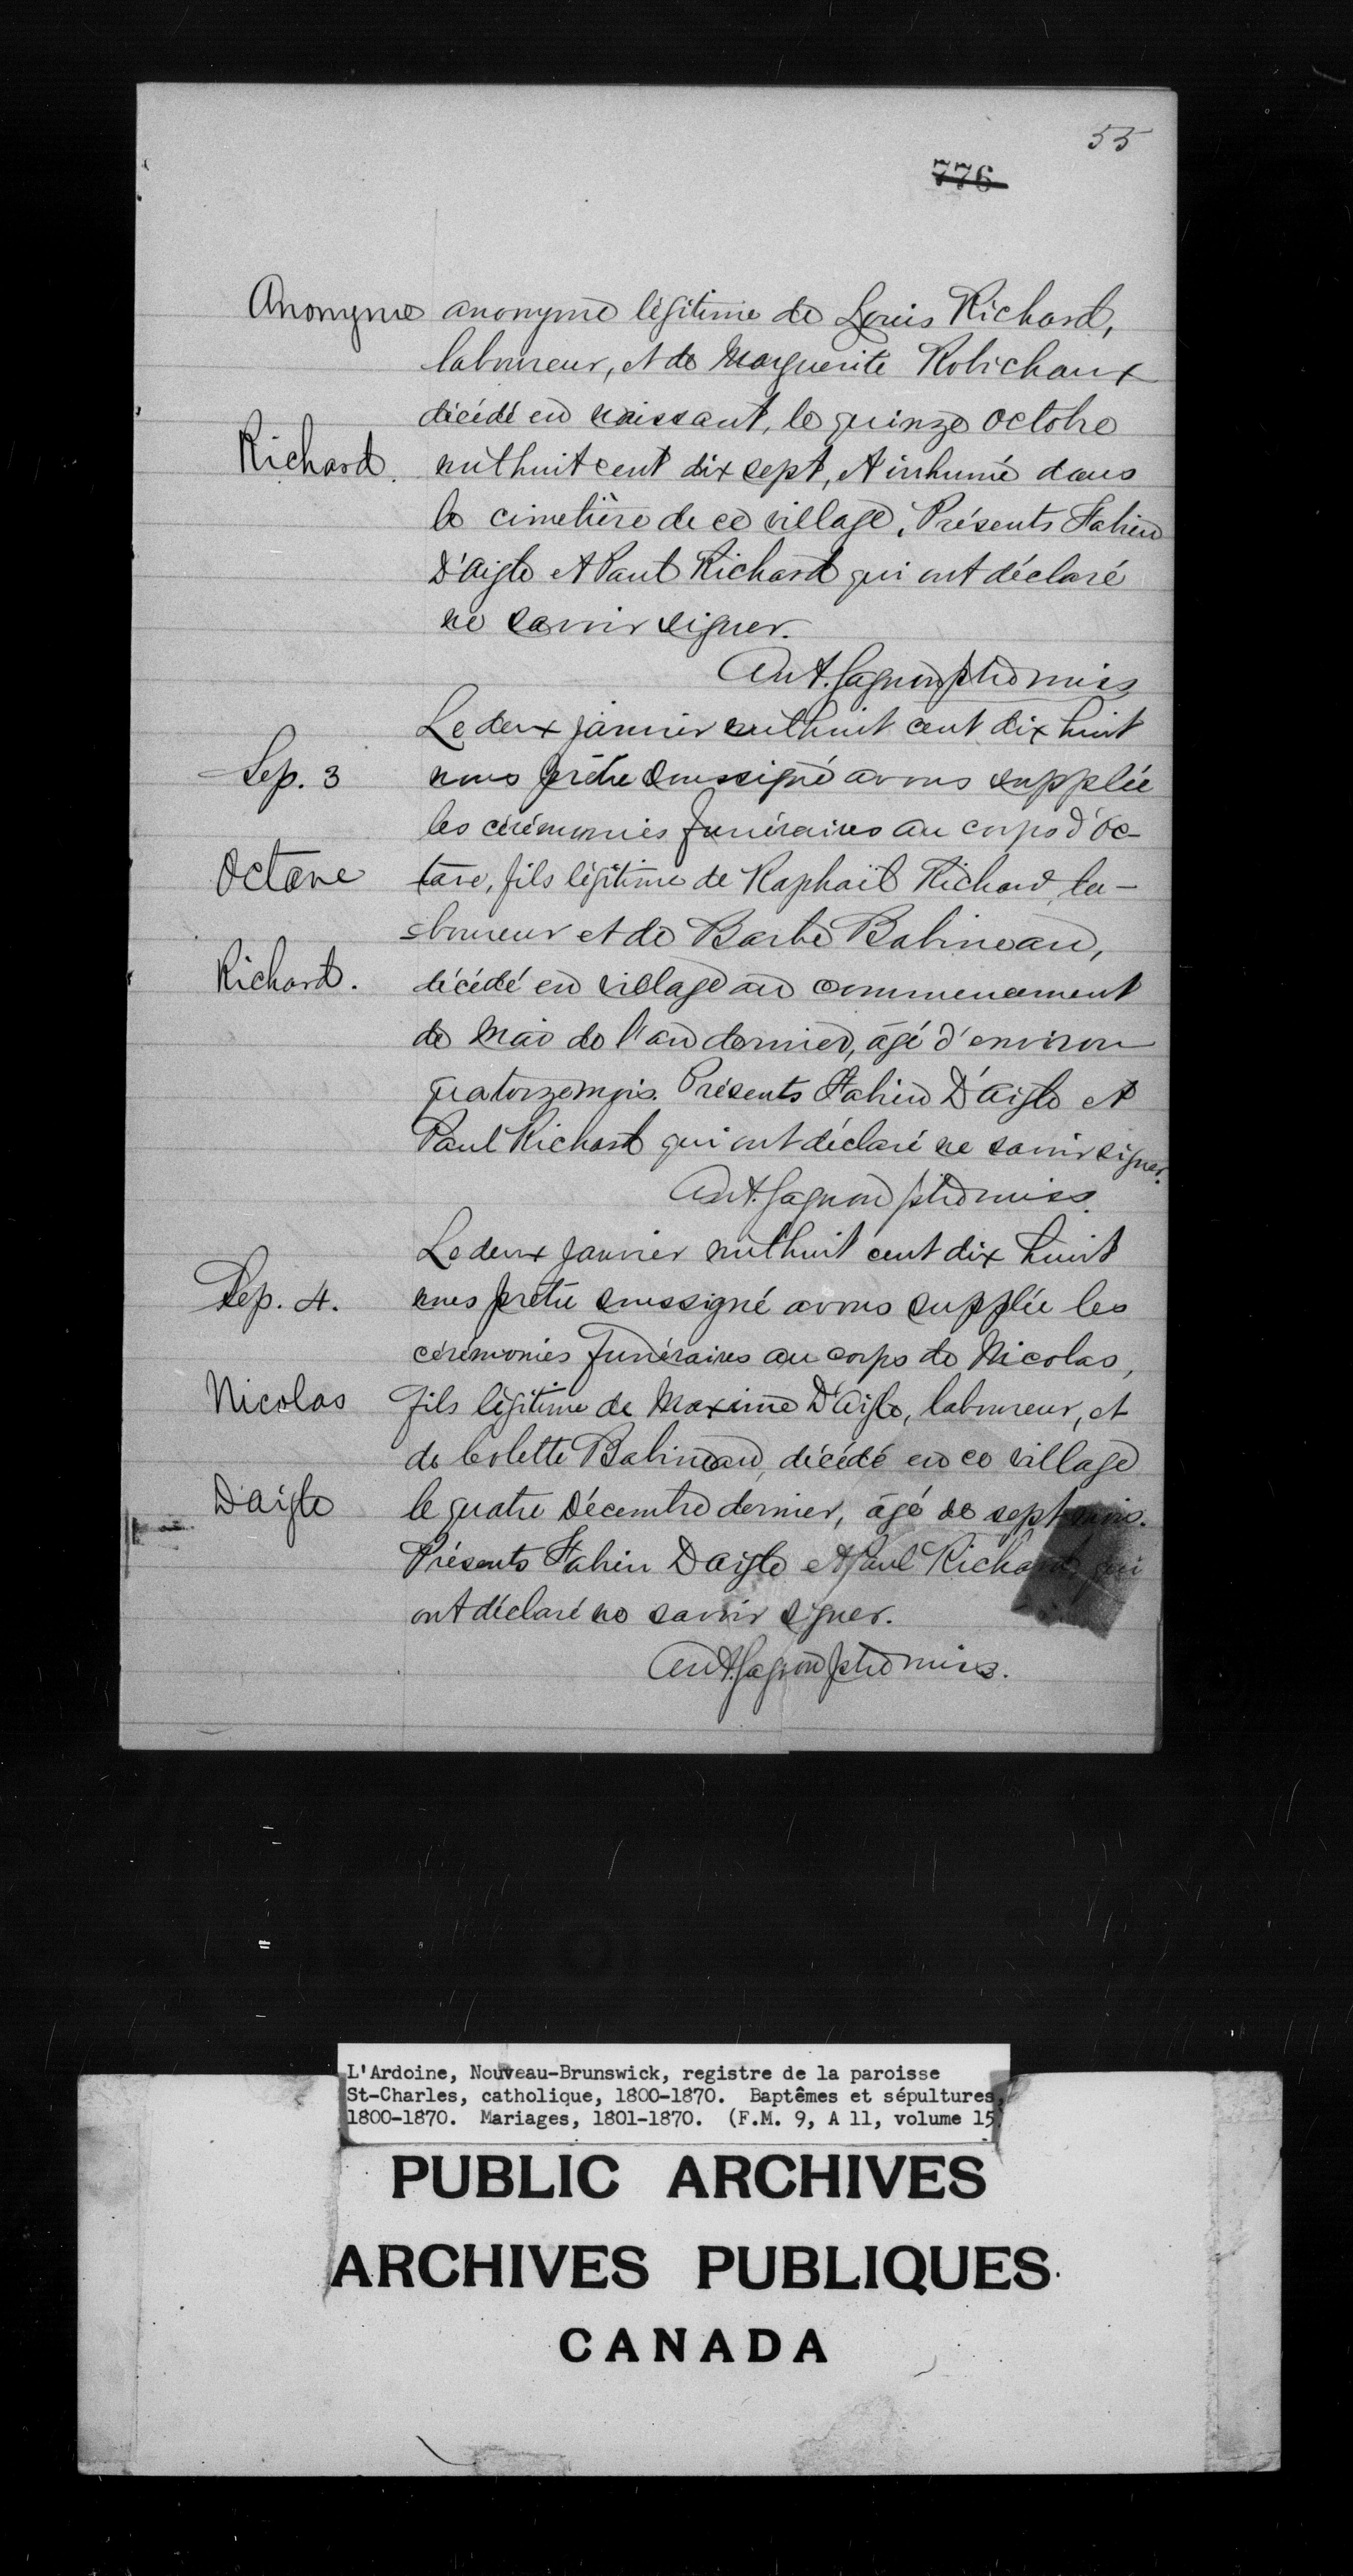 55
776
Anonyme anonyme légitime de Louis Richard,
laboureur, et de Marguerite Robichaux
décédé en naissant, le quinze octobre
Richard. mil huit cent dix sept, et inhumé dans
le cimetière de ce village. Présents Fabien
D'Aigle et Paul Richard qui ont déclaré
ne savoir signer.
Ant. Gagnon ptre miss
Le deux janvier mil huit cent dix huit
Sep. 3 nous prêtre soussigné avons supplée
les cérémonies funéraires au corps d'Oc-
Octave tave, fils légitime de Raphaël Richard, la-
boureur et de Barbe Babineau,
Richard. décédé en village au commencement
de Mai de l'an dernier, âgé d'environ
quatorze mois. Présents Fabien D'Aigle et
Paul Richard qui ont déclaré ne savoir signer.
Ant. Gagnon ptre miss.
Le deux janvier mil huit cent dix huit
Sep. 4. nous prêtre soussigné avons supplée les
cérémonies funéraires au corps de Nicolas,
Nicolas fils légitime de Maxime D'Aigle, laboureur, et
de Colette Babineau, décédé en ce village
Daigle le quatre Décembre dernier, âgé de sept mois.
Présents Fabien Daigle et Paul Richard qui
ont déclaré ne savoir signer.
Ant. Gagnon ptre miss.
L'Ardoine, Nouveau-Brunswick, registre de la paroisse
St-Charles, catholique, 1800-1870. Baptêmes et sépultures,
1800-1870. Mariages, 1801-1870. (F.M. 9, A 11, volume 15)
PUBLIC ARCHIVES
ARCHIVES PUBLIQUES
CANADA